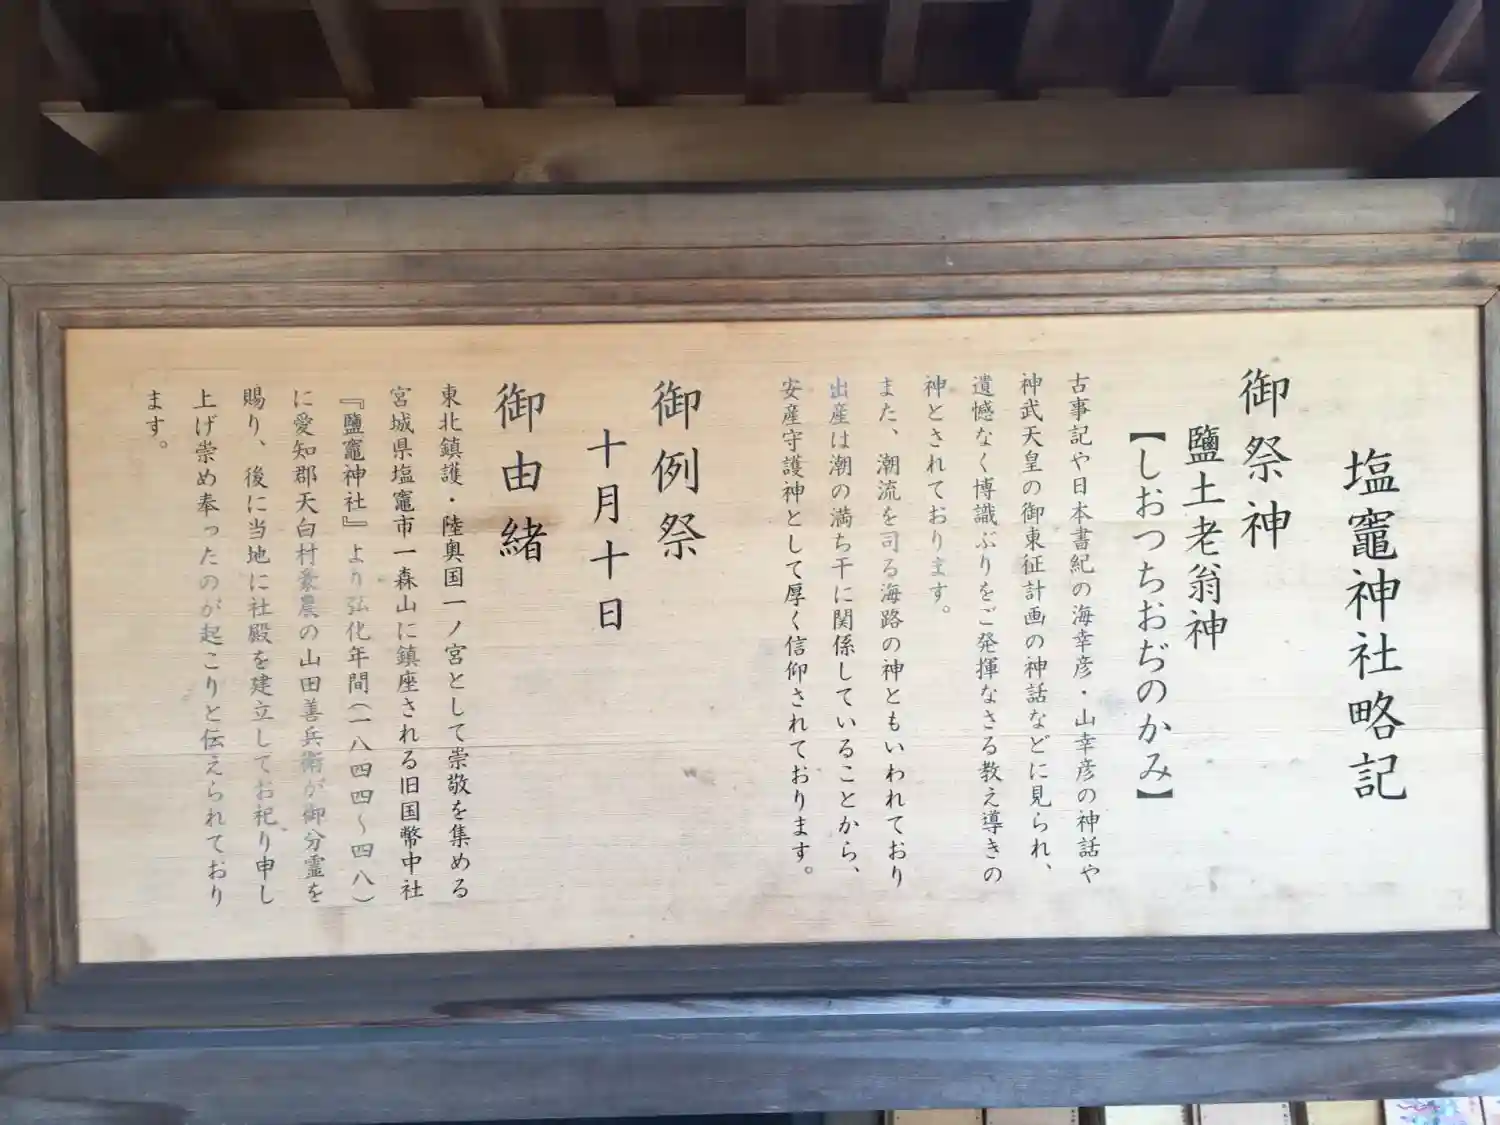 塩竈神社略記
御祭神
鹽土老翁神
【しおつちおぢのかみ】
古事記や日本書紀の海幸彦・山幸彦の神話や
神武天皇の御東征計画の神話などに見られ、
遺憾なく博識ぶりをご発揮なさる教え導きの
神とされております。
また、潮流を司る海路の神ともいわれており
出産は潮の満ち干に関係していることから、
安産守護神として厚く信仰されております。
御例祭
十月十日
御由緒
東北鎮護・陸奥国一ノ宮として崇敬を集める
宮城県塩竈市一森山に鎮座される旧国幣中社
『鹽竈神社』より弘化年間(一八四四〜四八)
に愛知郡天白村豪農の山田善兵衛が御分霊を
賜り、後に当地に社殿を建立してお祀り申し
上げ崇め奉ったのが起こりと伝えられており
ます。